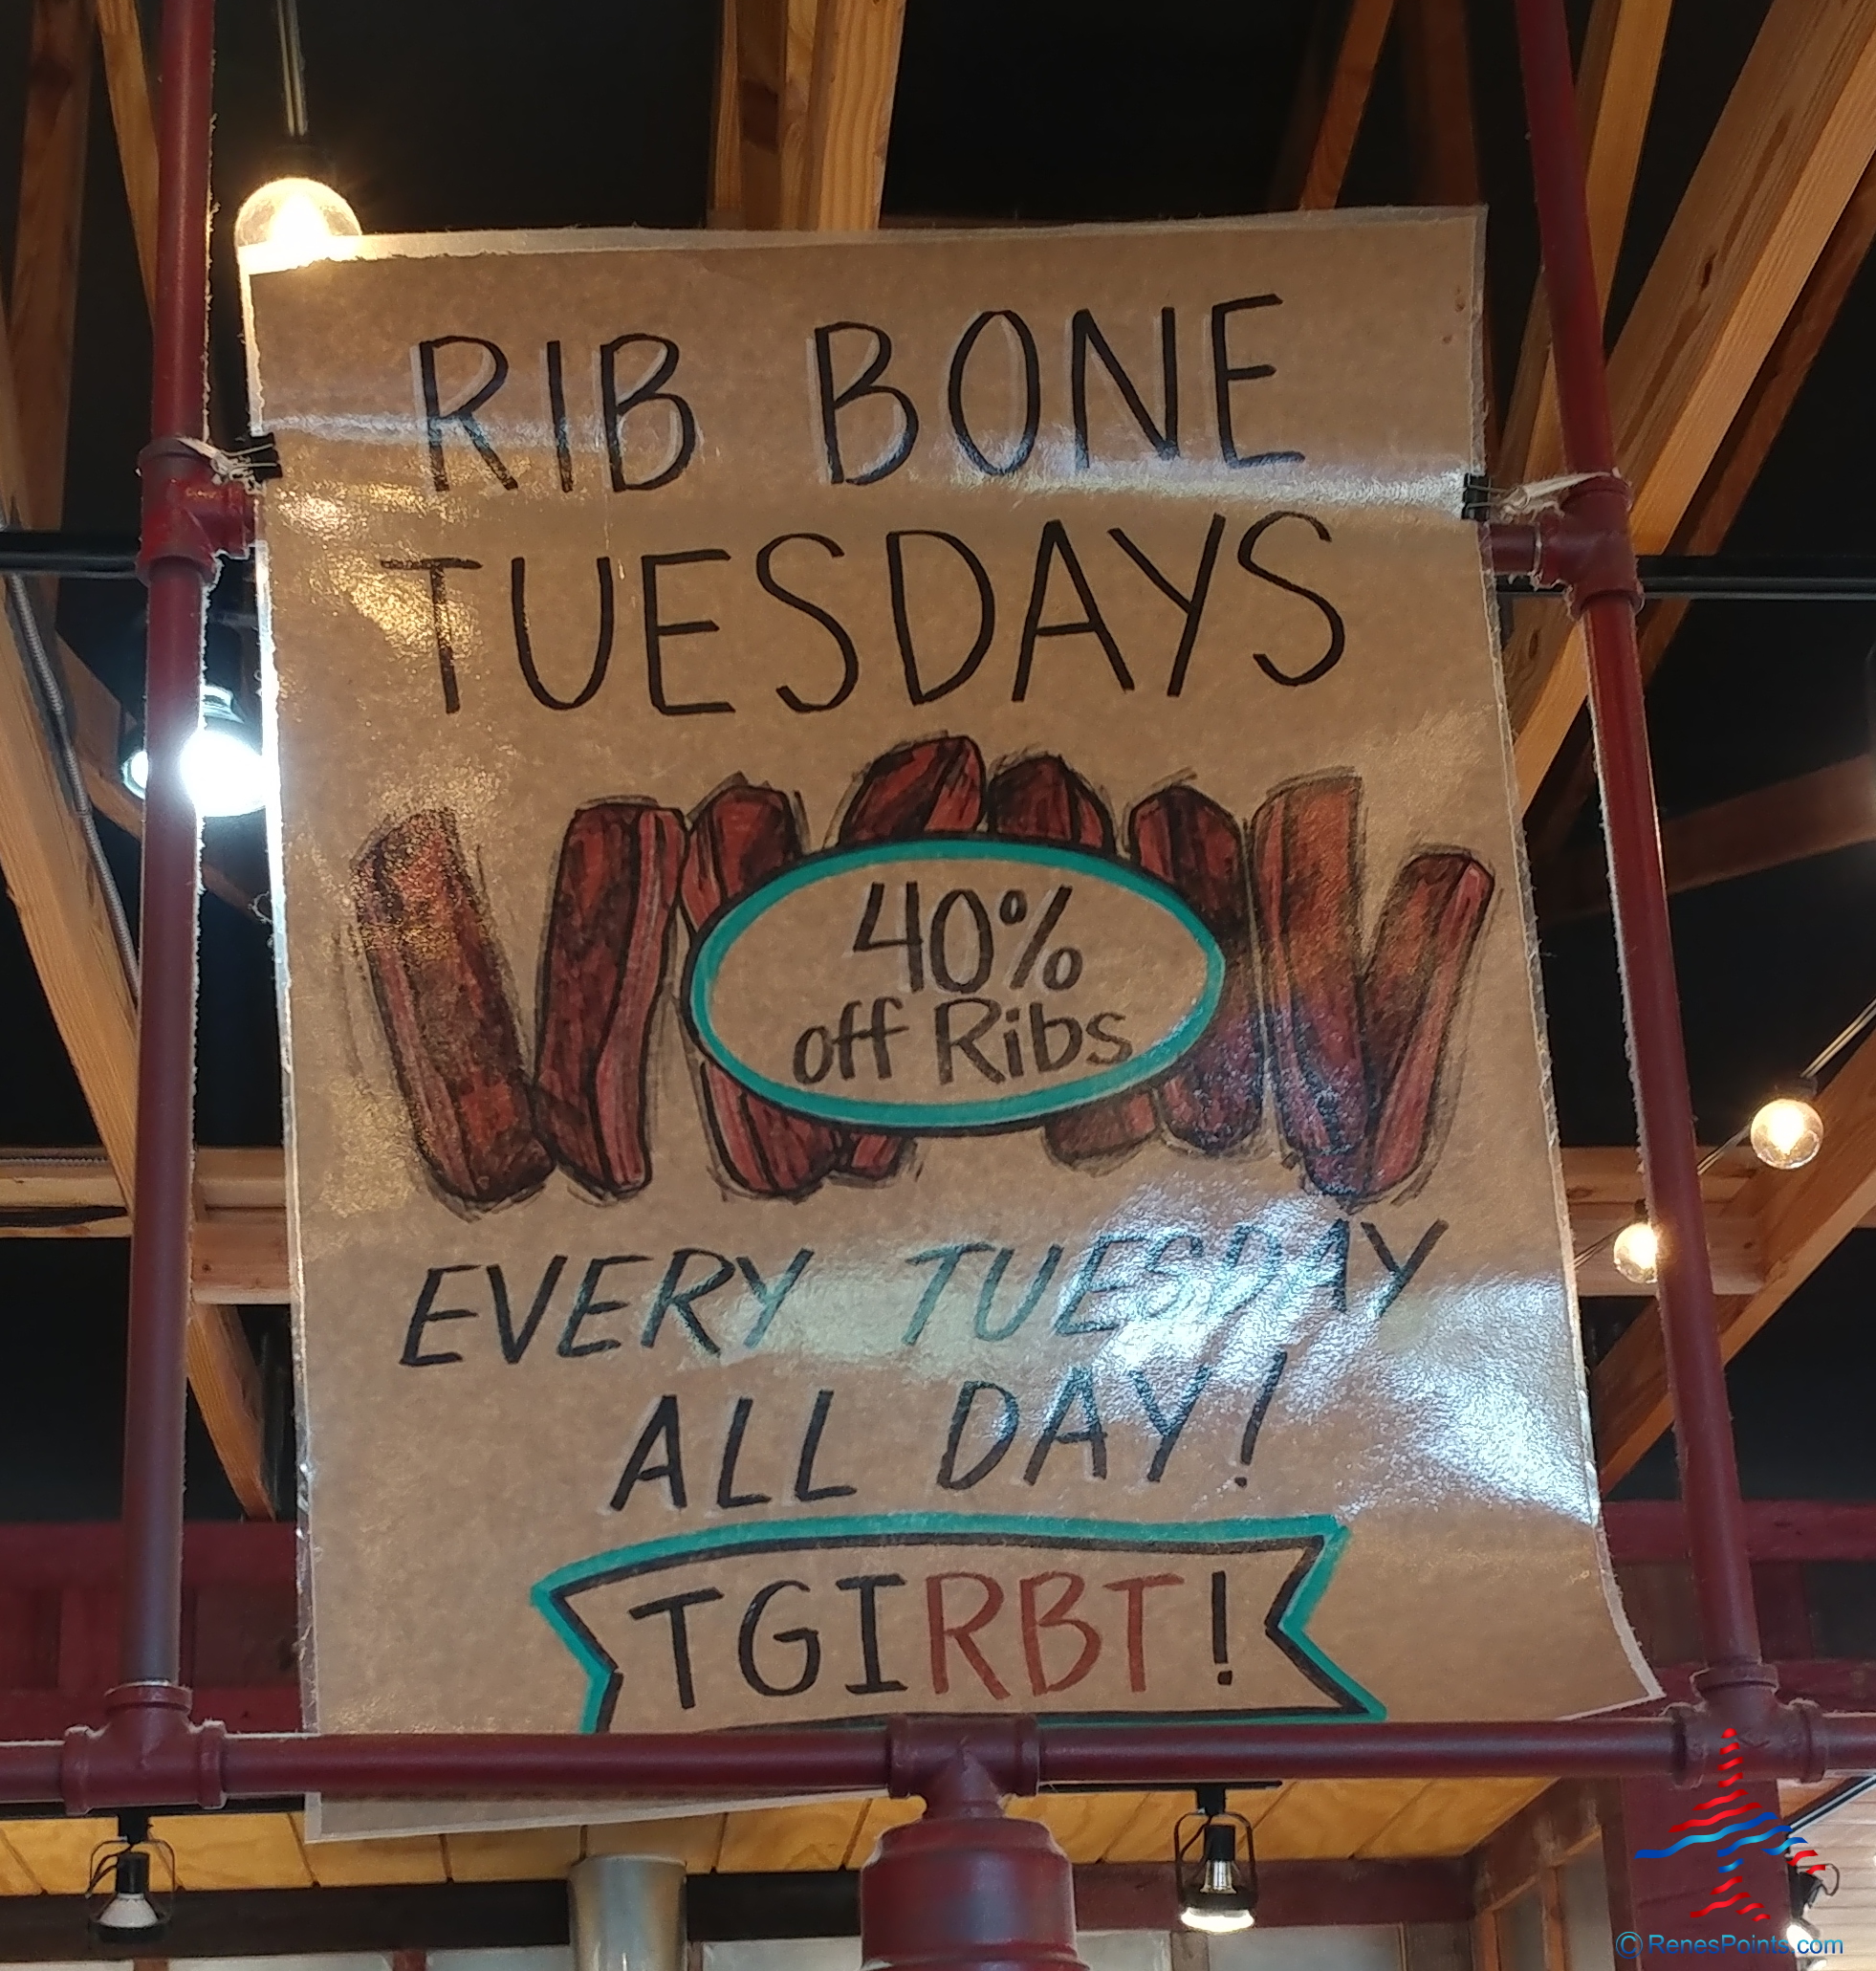 RIB BONE
TUESDAYS
40%
off Ribs
EVERY TUESDAY
ALL DAY!
TGIRBT!
© RenesPoints.com